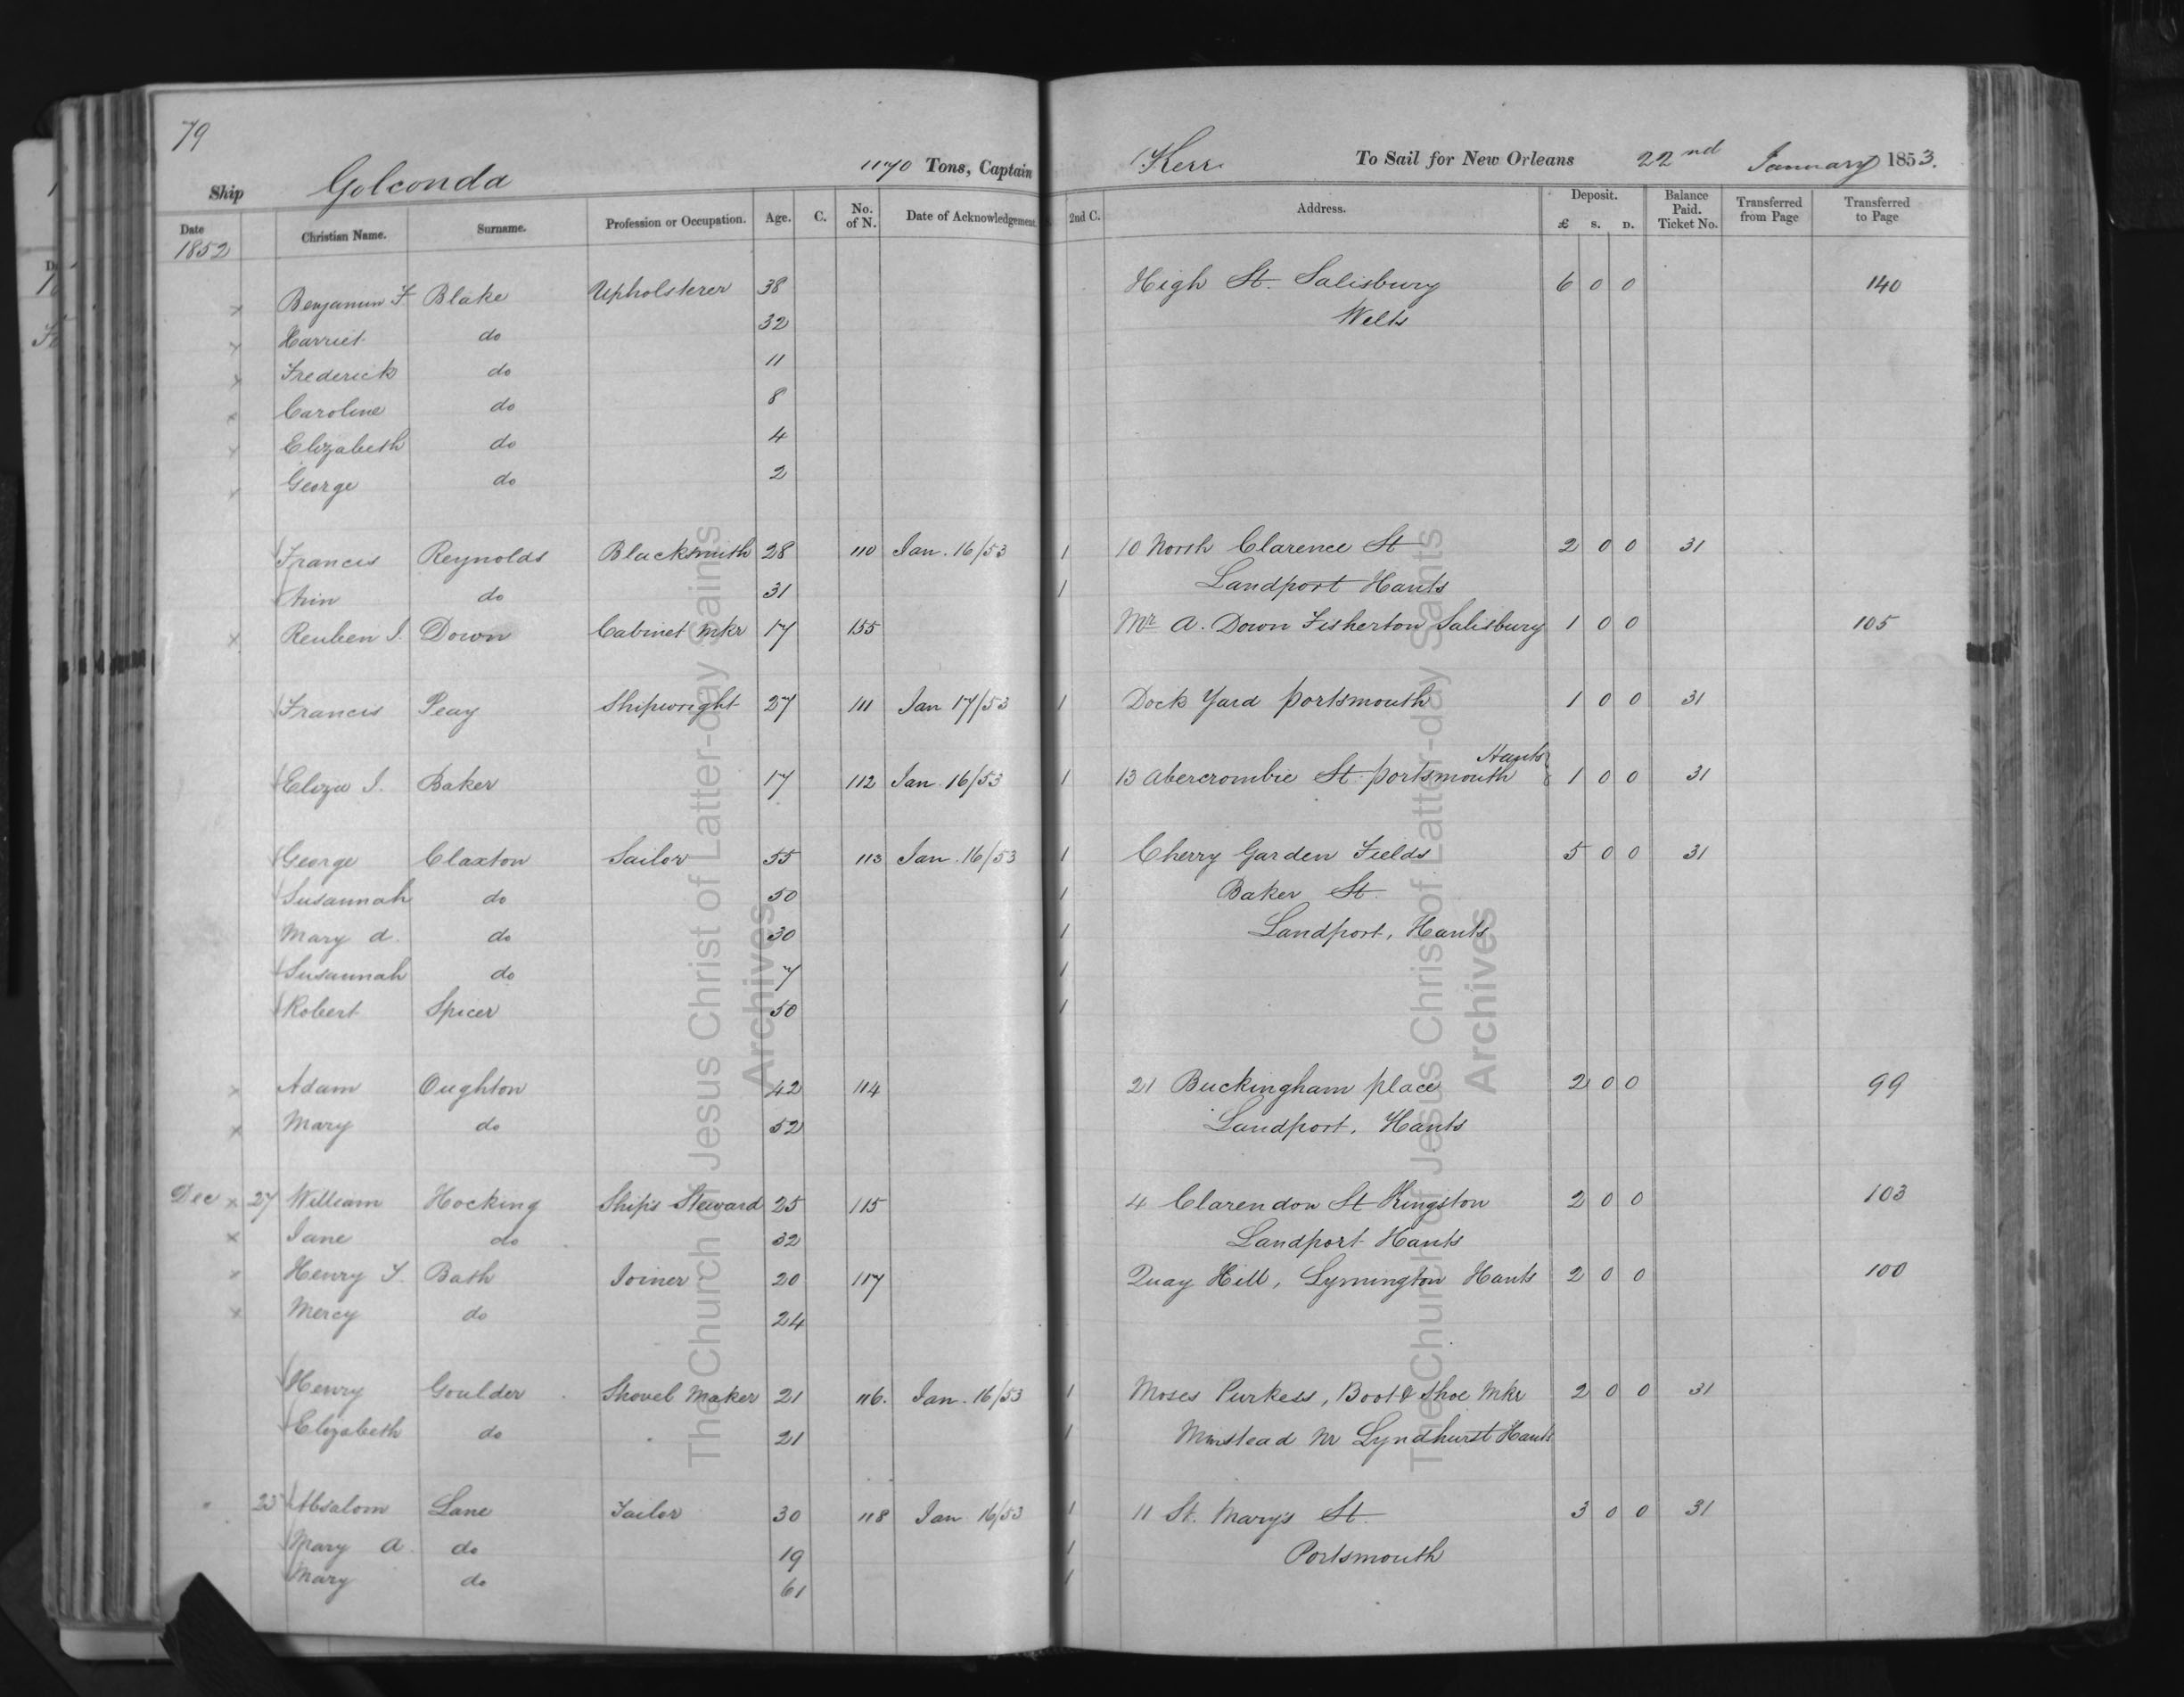 79
Ship Golconda 1170 Tons, Captain Kerr To Sail for New Orleans 22nd January 1853.
Date Christian Name. Surname. Profession or Occupation. Age. C. No. of N. Date of Acknowledgement. 2nd C. Address. Deposit. £ S. D. Balance Paid. Ticket No. Transferred from Page Transferred to Page
1852
x Benjamin F Blake Upholsterer 38 High St. Salisbury 6 0 0 140
x Harriet do 32 Welts
x Frederick do 11
x Caroline do 8
x Elizabeth do 4
x George do 2
Francis Reynolds Blacksmith 28 110 Jan. 16/53 1 10 North Clarence St 2 0 0 31
Ann do 31 1 Landport Hants
x Reuben J. Down Cabinet Mkr 17 155 Mr A. Down Fisherton Salisbury 1 0 0 105
Francis Peay Shipwright 27 111 Jan 17/53 1 Dock Yard Portsmouth 1 0 0 31
Eliza J. Baker 17 112 Jan. 16/53 1 13 Abercrombie St. Portsmouth Hants 1 0 0 31
George Claxton Sailor 55 113 Jan. 16/53 1 Cherry Garden Fields 5 0 0 31
Susannah do 50 1 Baker St.
Mary a. do 30 1 Landport, Hants
Susannah do 7 1
Robert Spicer 50 1
x Adam Oughton 42 114 21 Buckingham place 2 0 0 99
x Mary do 52 Landport, Hants
Dec x 27 William Hocking Ship's Steward 25 115 4 Clarendon St Kingston 2 0 0 103
x Jane do 32 Landport Hants
x Henry J. Bath Joiner 20 117 Quay Hill, Lymington Hants 2 0 0 100
x Mercy do 24
Henry Goulder Shovel Maker 21 116. Jan. 16/53 1 Moses Purkess, Boot & Shoe Mkr 2 0 0 31
Elizabeth do 21 1 Minstead Nr Lyndhurst Hants
" Absalom Lane Tailor 30 118 Jan 16/53 1 11 St. Mary's St. 3 0 0 31
Mary A. do 19 1 Portsmouth
Mary do 61 1
The Church of Jesus Christ of Latter-day Saints
Archives
The Church of Jesus Christ of Latter-day Saints
Archives